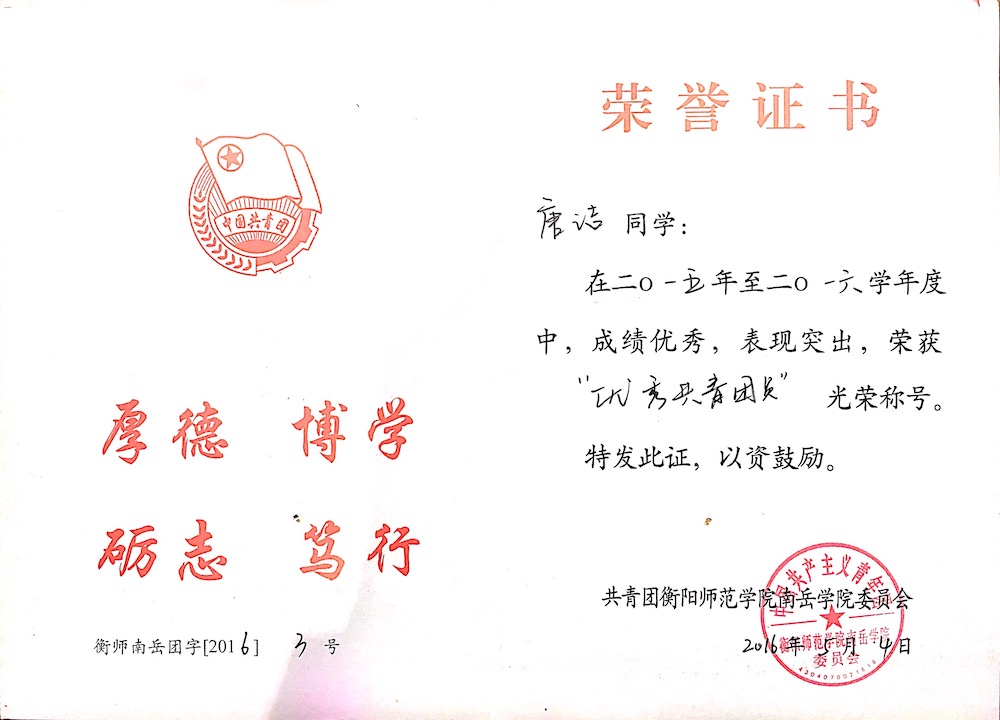 中国共青团
厚德 博学
砺志 笃行
衡师南岳团字[2016] 3 号
荣誉证书
唐洁 同学：
在二〇一五年至二〇一六学年度
中，成绩优秀，表现突出，荣获
“优秀共青团员” 光荣称号。
特发此证，以资鼓励。
共青团衡阳师范学院南岳学院委员会
2016年 5月 4日
中国共产主义青年团
衡阳师范学院南岳学院
委员会